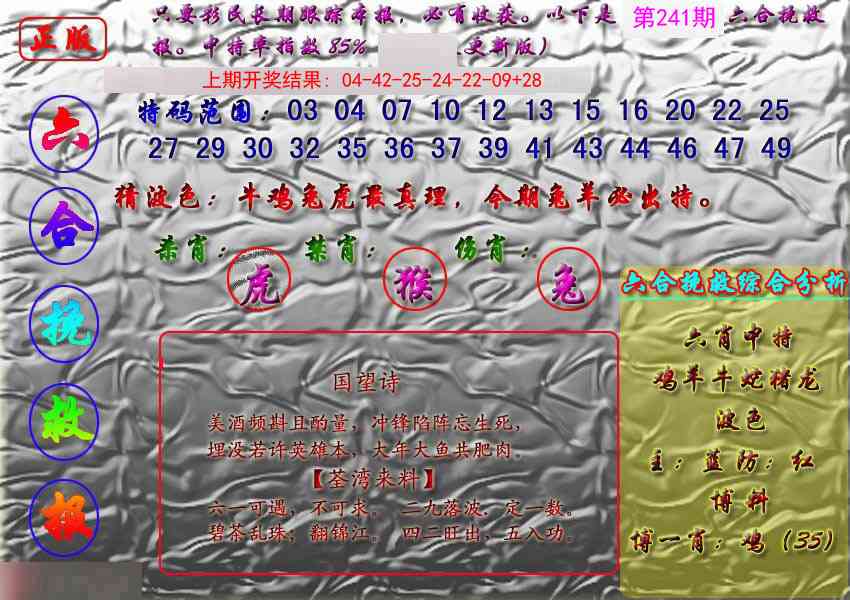 正版
只要彩民长期跟踪本报，必有收获。以下是 第241期 六合挽救
报。中持率指数85% 更新版）
上期开奖结果: 04-42-25-24-22-09+28
特码范围：03 04 07 10 12 13 15 16 20 22 25
27 29 30 32 35 36 37 39 41 43 44 46 47 49
猜波色：牛鸡兔虎最真理，今期兔羊必出特。
杀肖： 禁肖： 伤肖：
虎 猴 兔
六
合
挽
救
报
国望诗
美酒频斟且酌量，冲锋陷阵忘生死，
埋没若许英雄本，大年大鱼共肥肉。
【荃湾来料】
六一可遇，不可求。 二九落波，定一数。
碧茶乱珠；翻锦江。 四二旺出，五入功。
六合挽救综合分析
六肖中持
鸡羊牛蛇猪龙
波色
主：蓝防：红
博料
博一肖：鸡（35）